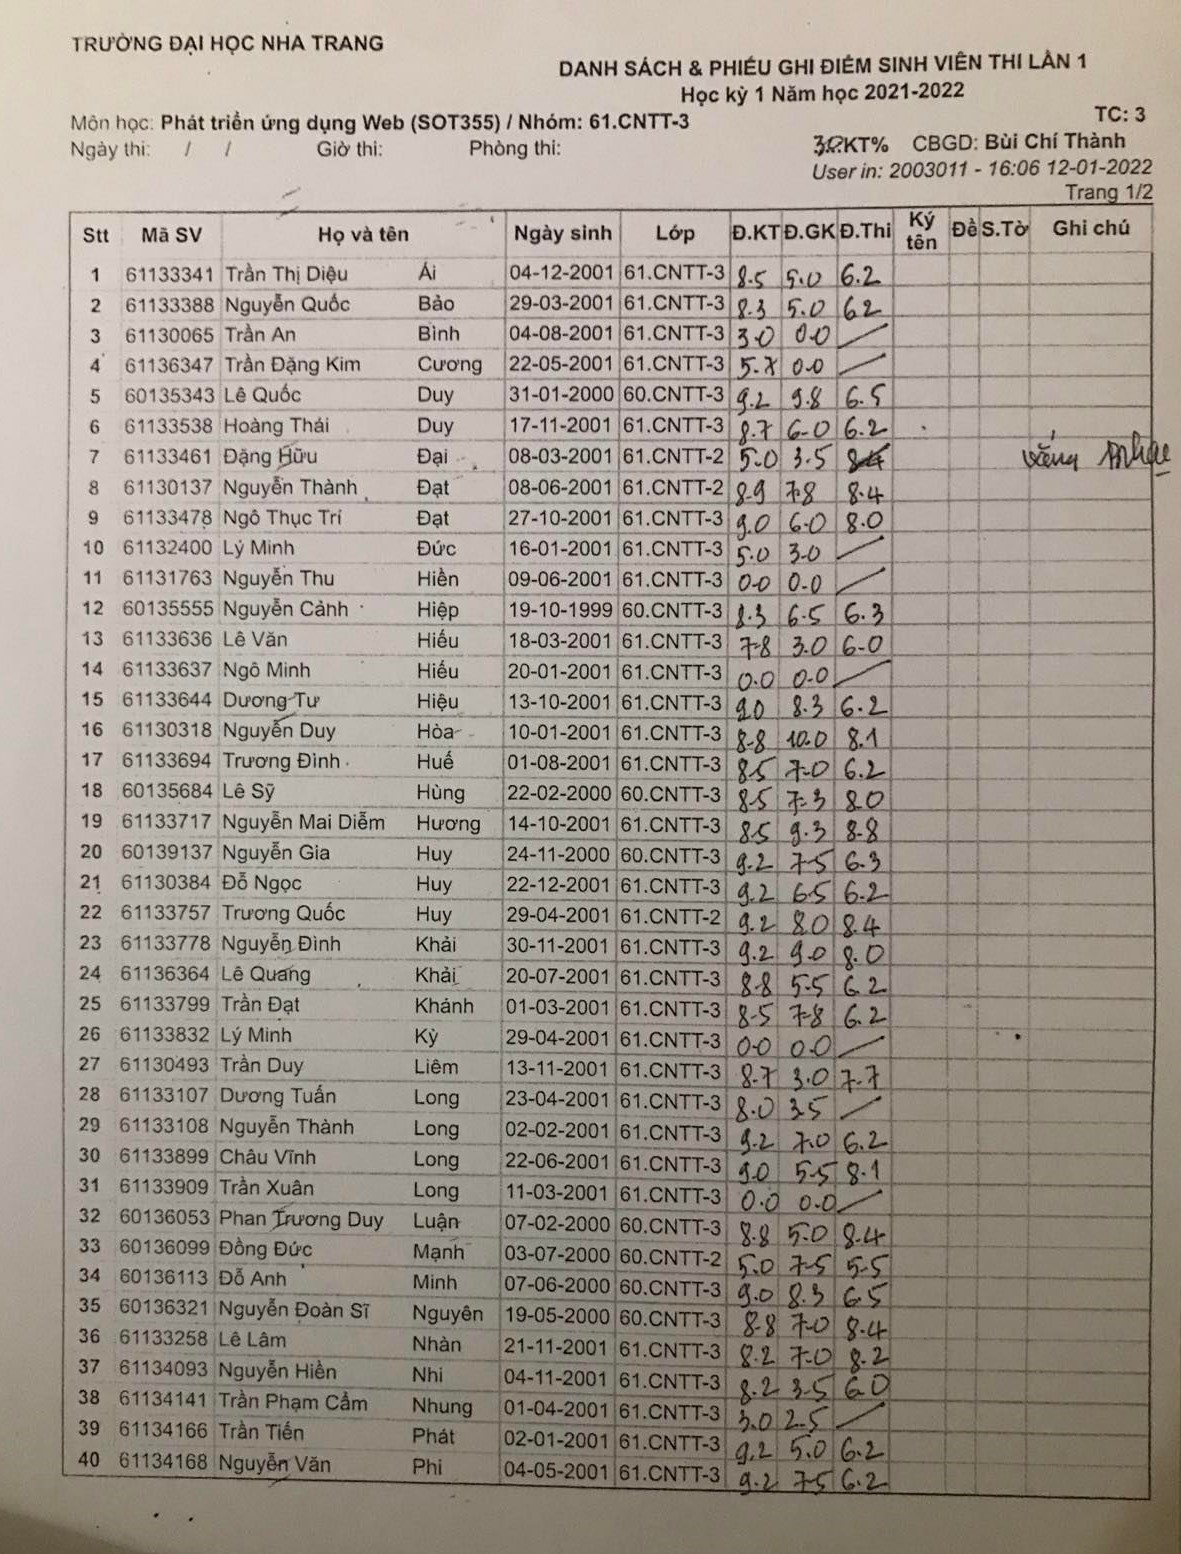 TRƯỜNG ĐẠI HỌC NHA TRANG
DANH SÁCH & PHIẾU GHI ĐIỂM SINH VIÊN THI LẦN 1
Học kỳ 1 Năm học 2021-2022
TC: 3
Môn học: Phát triển ứng dụng Web (SOT355) / Nhóm: 61.CNTT-3
Ngày thi: / / Giờ thi: Phòng thi: KT% CBGD: Bùi Chí Thành
User in: 2003011 - 16:06 12-01-2022
Trang 1/2
Stt Mã SV Họ và tên Ngày sinh Lớp Đ.KT Đ.GK Đ.Thi Ký tên Đề S.Tờ Ghi chú
1 61133341 Trần Thị Diệu Ái 04-12-2001 61.CNTT-3 8.5 5.0 6.2
2 61133388 Nguyễn Quốc Bảo 29-03-2001 61.CNTT-3 8.3 5.0 6.2
3 61130065 Trần An Bình 04-08-2001 61.CNTT-3 3.0 0.0 /
4 61136347 Trần Đặng Kim Cương 22-05-2001 61.CNTT-3 5.7 0.0 /
5 60135343 Lê Quốc Duy 31-01-2000 60.CNTT-3 9.2 9.8 6.5
6 61133538 Hoàng Thái Duy 17-11-2001 61.CNTT-3 8.7 6.0 6.2
7 61133461 Đặng Hữu Đại 08-03-2001 61.CNTT-2 5.0 3.5 8.4 vắng
8 61130137 Nguyễn Thành Đạt 08-06-2001 61.CNTT-2 8.9 7.8 8.4
9 61133478 Ngô Thục Trí Đạt 27-10-2001 61.CNTT-3 9.0 6.0 8.0
10 61132400 Lý Minh Đức 16-01-2001 61.CNTT-3 5.0 3.0 /
11 61131763 Nguyễn Thu Hiền 09-06-2001 61.CNTT-3 0.0 0.0 /
12 60135555 Nguyễn Cảnh Hiệp 19-10-1999 60.CNTT-3 8.3 6.5 6.3
13 61133636 Lê Văn Hiếu 18-03-2001 61.CNTT-3 7.8 3.0 6.0
14 61133637 Ngô Minh Hiếu 20-01-2001 61.CNTT-3 0.0 0.0 /
15 61133644 Dương Tư Hiệu 13-10-2001 61.CNTT-3 9.0 8.3 6.2
16 61130318 Nguyễn Duy Hòa 10-01-2001 61.CNTT-3 8.8 10.0 8.1
17 61133694 Trương Đình Huế 01-08-2001 61.CNTT-3 8.5 7.0 6.2
18 60135684 Lê Sỹ Hùng 22-02-2000 60.CNTT-3 8.5 7.3 8.0
19 61133717 Nguyễn Mai Diễm Hương 14-10-2001 61.CNTT-3 8.5 9.3 8.8
20 60139137 Nguyễn Gia Huy 24-11-2000 60.CNTT-3 9.2 7.5 6.3
21 61130384 Đỗ Ngọc Huy 22-12-2001 61.CNTT-3 9.2 6.5 6.2
22 61133757 Trương Quốc Huy 29-04-2001 61.CNTT-2 9.2 8.0 8.4
23 61133778 Nguyễn Đình Khải 30-11-2001 61.CNTT-3 9.2 9.0 8.0
24 61136364 Lê Quang Khải 20-07-2001 61.CNTT-3 8.8 5.5 6.2
25 61133799 Trần Đạt Khánh 01-03-2001 61.CNTT-3 8.5 7.8 6.2
26 61133832 Lý Minh Kỳ 29-04-2001 61.CNTT-3 0.0 0.0 /
27 61130493 Trần Duy Liêm 13-11-2001 61.CNTT-3 8.7 3.0 7.7
28 61133107 Dương Tuấn Long 23-04-2001 61.CNTT-3 8.0 3.5 /
29 61133108 Nguyễn Thành Long 02-02-2001 61.CNTT-3 9.2 7.0 6.2
30 61133899 Châu Vĩnh Long 22-06-2001 61.CNTT-3 9.0 5.5 8.1
31 61133909 Trần Xuân Long 11-03-2001 61.CNTT-3 0.0 0.0 /
32 60136053 Phan Trương Duy Luận 07-02-2000 60.CNTT-3 8.8 5.0 8.4
33 60136099 Đồng Đức Mạnh 03-07-2000 60.CNTT-2 5.0 7.5 5.5
34 60136113 Đỗ Anh Minh 07-06-2000 60.CNTT-3 9.0 8.3 6.5
35 60136321 Nguyễn Đoàn Sĩ Nguyên 19-05-2000 60.CNTT-3 8.8 7.0 8.4
36 61133258 Lê Lâm Nhàn 21-11-2001 61.CNTT-3 8.2 7.0 8.2
37 61134093 Nguyễn Hiền Nhi 04-11-2001 61.CNTT-3 8.2 3.5 6.0
38 61134141 Trần Phạm Cẩm Nhung 01-04-2001 61.CNTT-3 3.0 2.5 /
39 61134166 Trần Tiến Phát 02-01-2001 61.CNTT-3 9.2 5.0 6.2
40 61134168 Nguyễn Văn Phi 04-05-2001 61.CNTT-3 9.2 7.5 6.2